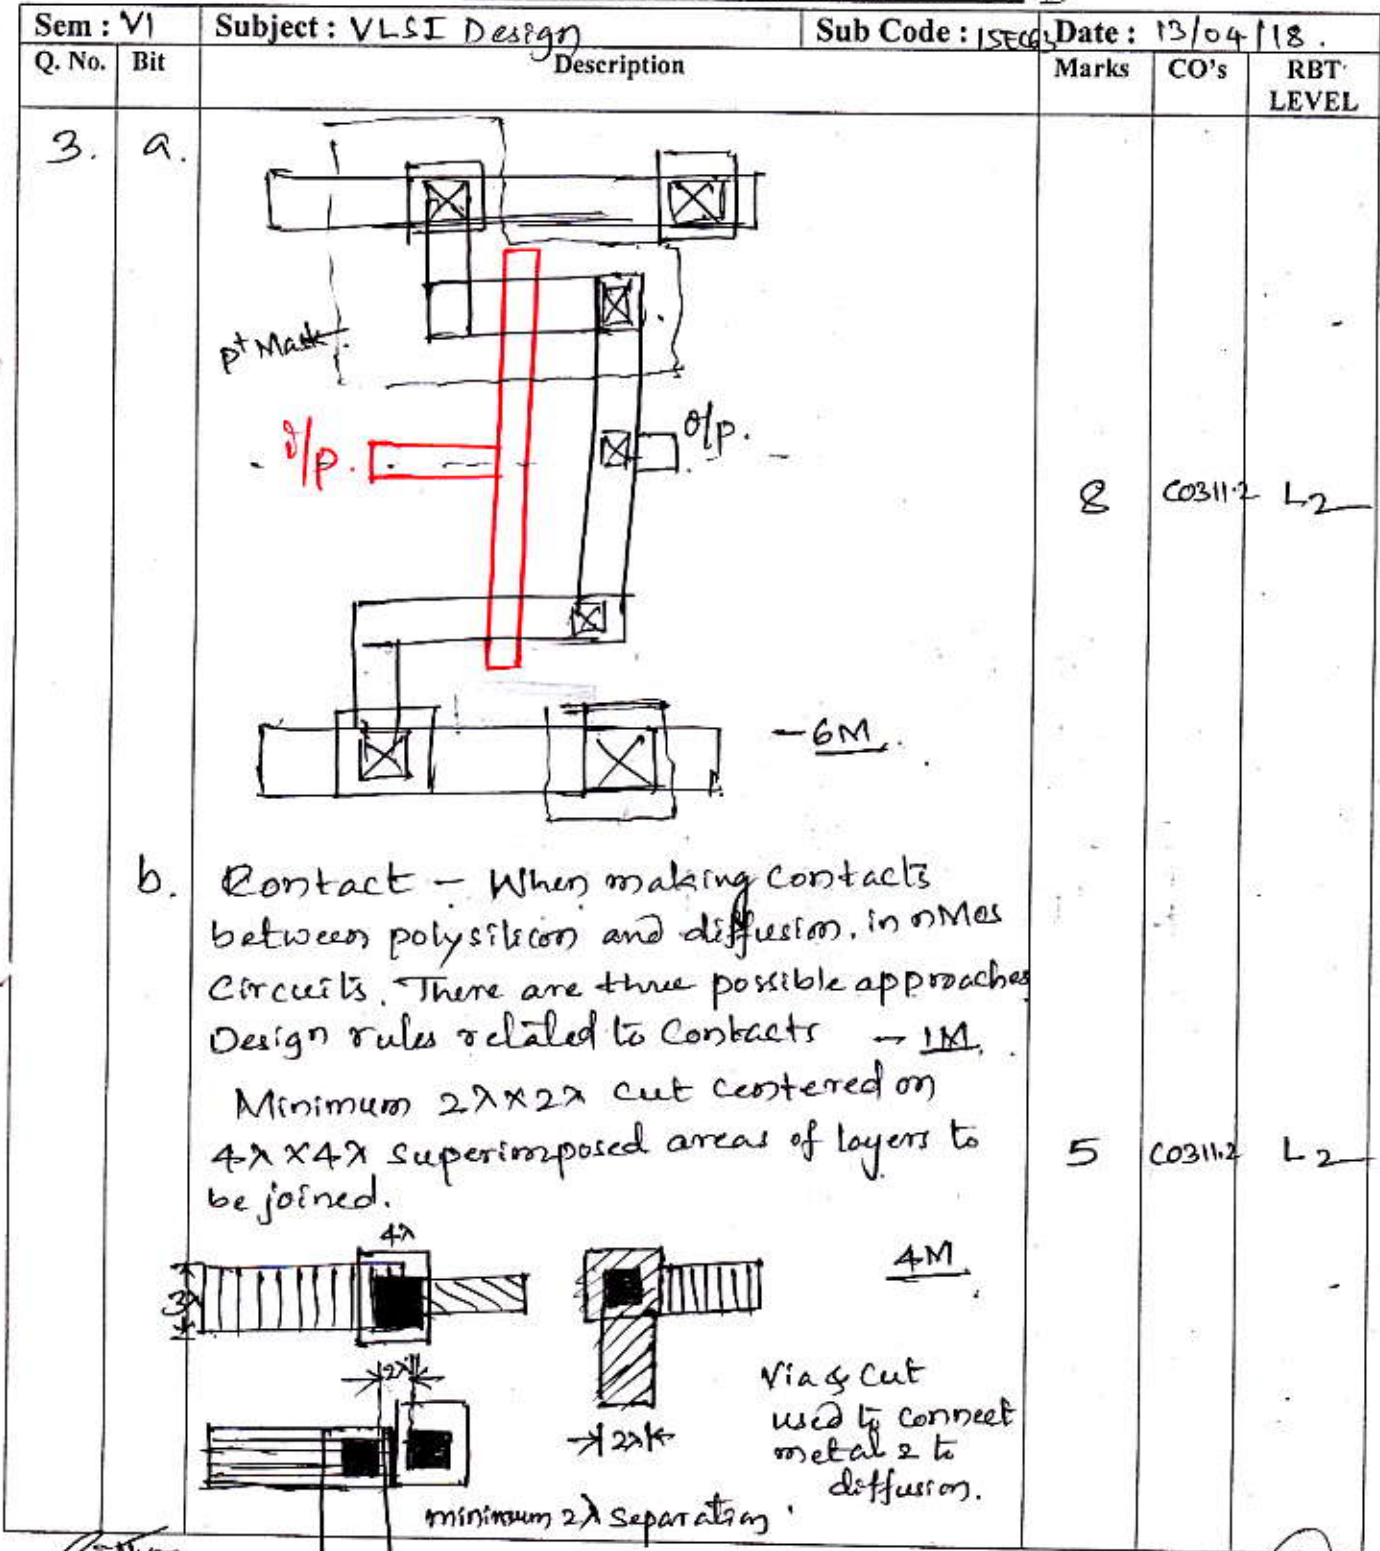 Sem : VI Subject : VLSI Design Sub Code : 15EC63 Date : 13/04/18.
Q. No. Bit Description Marks CO's RBT LEVEL
3. a.
p+ Mask.
i/p.
o/p.
8 CO311.2 L2
- 6M.
b. Contact - When making contacts
between polysilicon and diffusion. in nMos
Circuits. There are three possible approaches
Design rules related to Contacts - 1M.
Minimum 2λ×2λ cut centered on
4λ×4λ superimposed areas of layers to
be joined.
5 CO311.2 L2
4λ
3λ
4M.
2λ
2λ
Via & Cut
used to connect
metal 2 to
diffusion.
minimum 2λ separation.